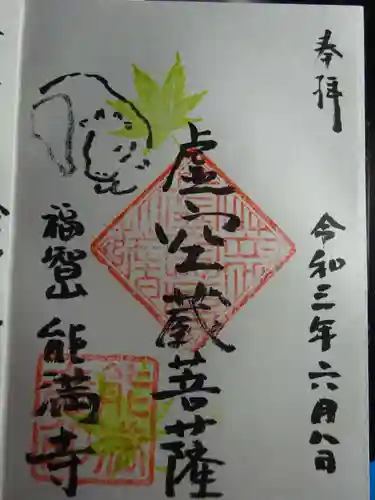 奉拝
令和三年六月八日
虚空蔵菩薩
福智山 能満寺
能満寺